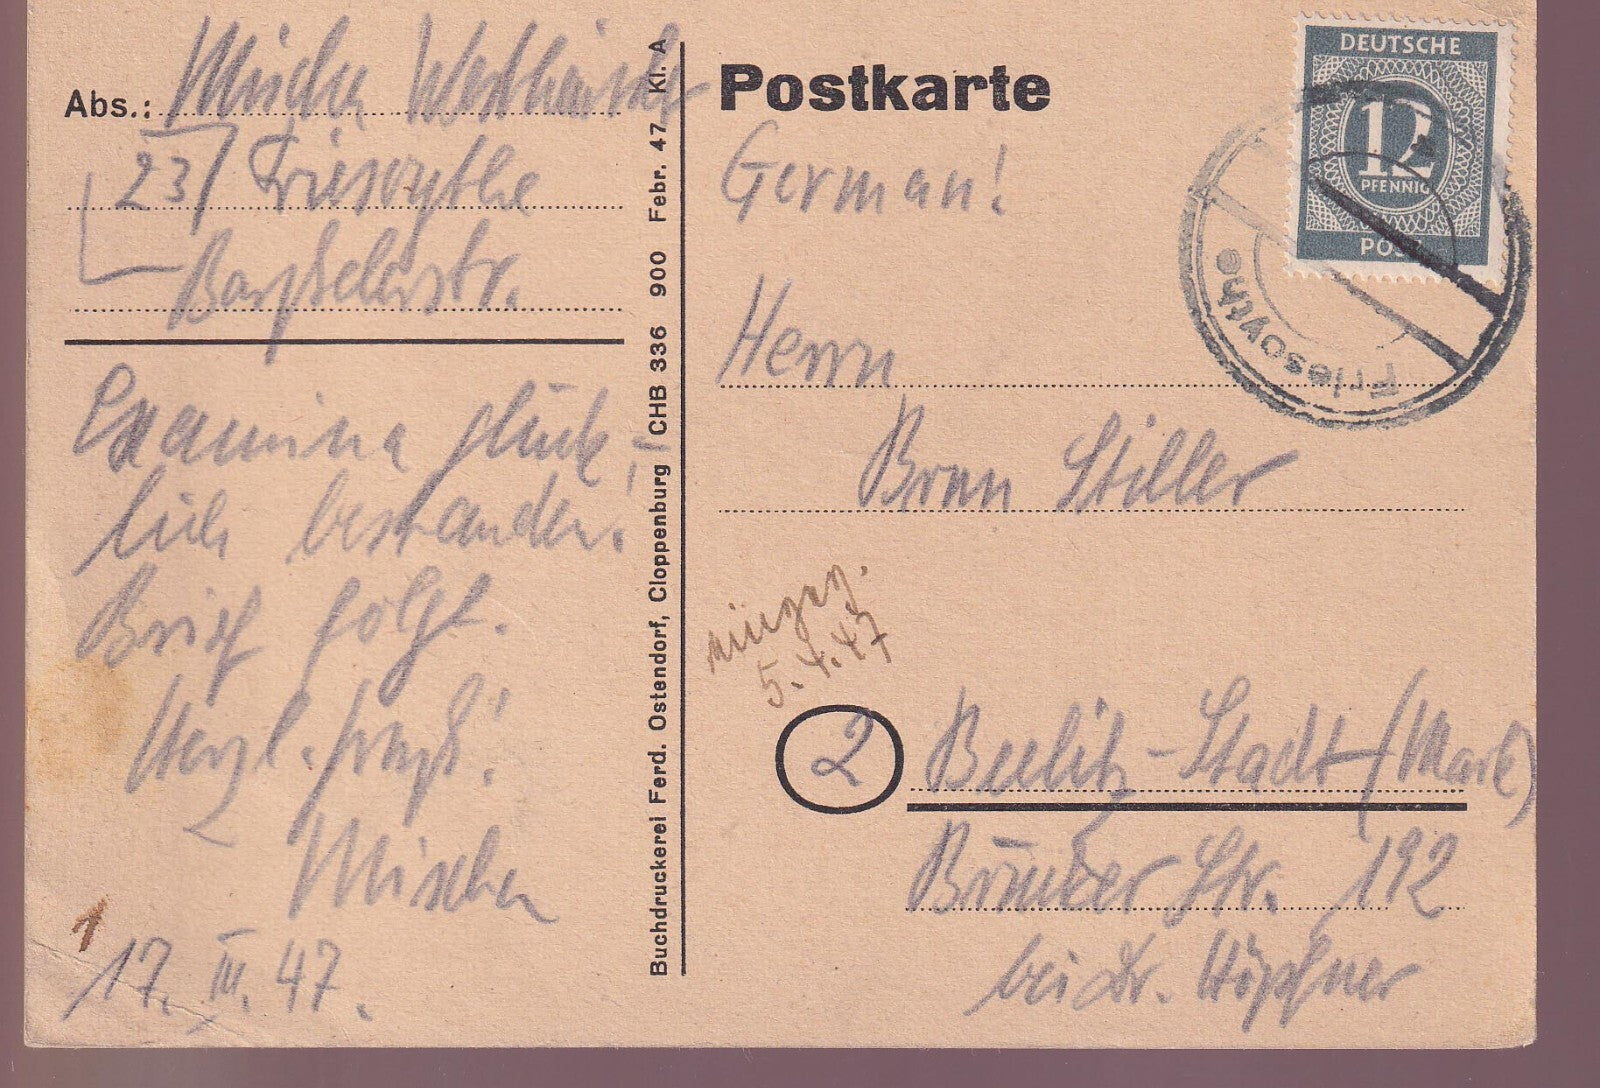 Abs.:
23 Friesoythe
Barßelerstr.
Examina glück-
lich bestanden!
Brief folgt.
Herzl. Gruß!
17. III. 47.
Buchdruckerei Ferd. Ostendorf, Cloppenburg CHB 336 900 Febr. 47 Kl. A
Postkarte
German!
Herrn
Stiller
5.4.47
2 Beelitz-Stadt (Mark)
Str. 192
bei Dr. Höpfner
DEUTSCHE
12
PFENNIG
POST
Friesoythe